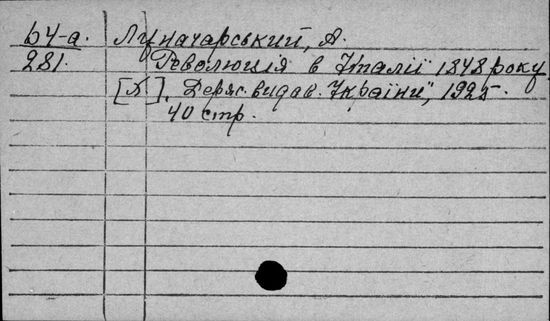 б4-а. Луначарський, А.
281. Революція в Італії 1848 року.
[Х], Держ. видав. України", 1925.
40 стр.